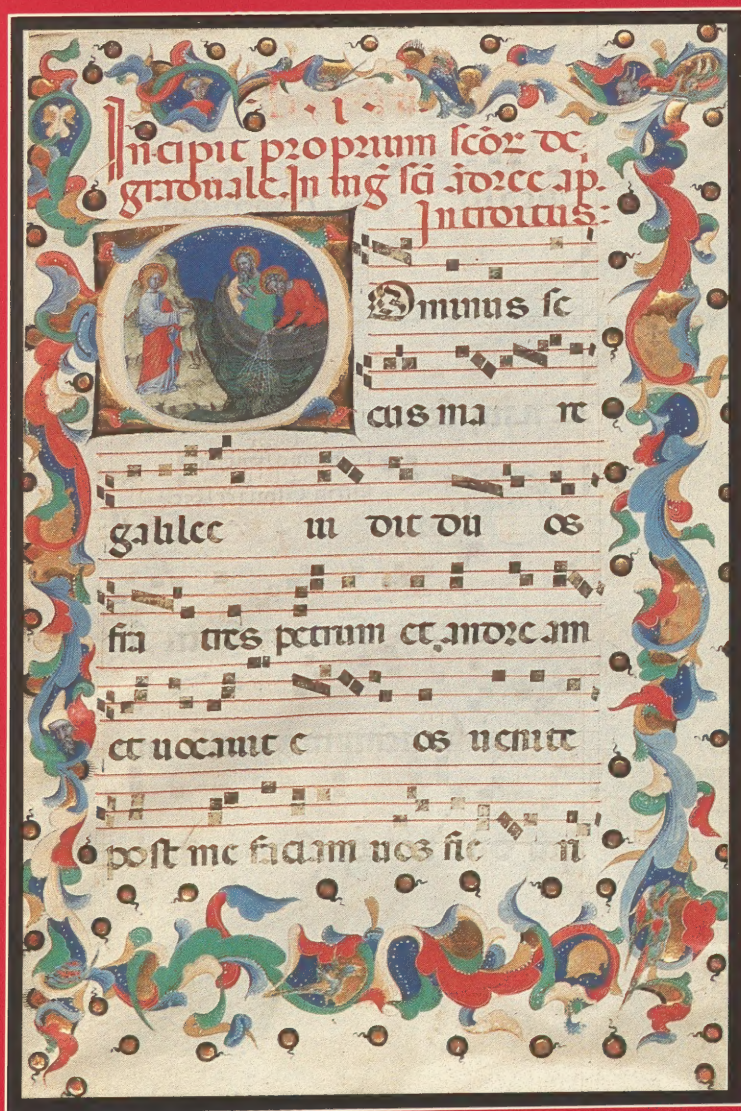 · I ·
Incipit proprium scōꝝ de
graduale. In uig̃ sc̃i ādree ap.
Introitus:
Ominus se
cus ma re
galilee ui dit du os
fra tres petrum et andre am
et uocauit e os uenite
post me faciam uos fie ri